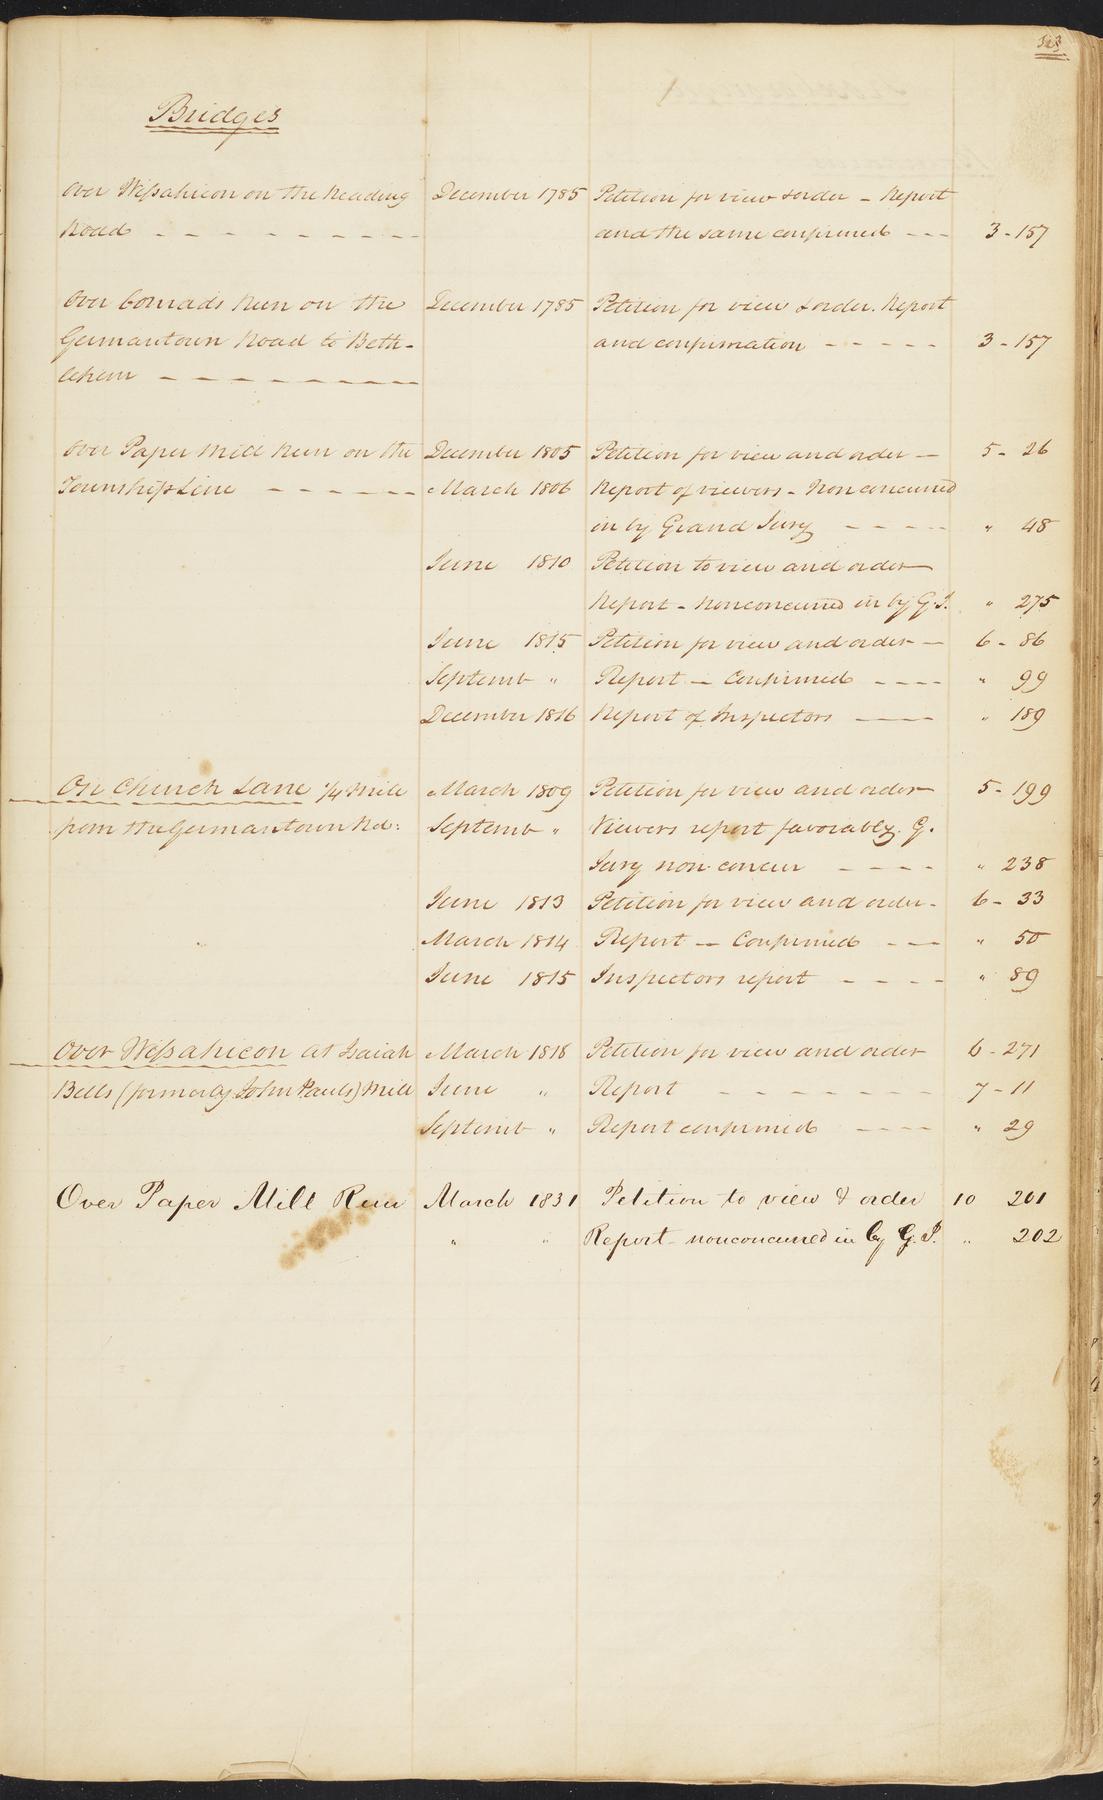 Bridges
Over Wissahicon on the Reading December 1785 Petition for view & order - Report
Road - - - - - - - - - and the same confirmed - - - 3 - 157
Over Conrads Run on the December 1785 Petition for view & order. Report
Germantown Road to Beth- and confirmation - - - - - 3 - 157
lehem - - - - - - - - -
Over Paper Mill Run on the December 1805 Petition for view and order - 5 - 26
Township Line - - - - - - March 1806 Report of viewers - Non concurred
in by Grand Jury - - - - " 48
June 1810 Petition to view and order
Report - Nonconcurred in by G. J. " 275
June 1815 Petition for view and order - 6 - 86
Septemb " Report - Confirmed - - - - " 99
December 1816 Report of Inspectors - - - - " 189
On Church Lane 1/4 Mile March 1809 Petition for view and order 5 - 199
from the Germantown Rd: Septemb " Viewers report favorably. G.
Jury non-concur - - - - " 238
June 1813 Petition for view and order - 6 - 33
March 1814 Report - Confirmed - - - " 50
June 1815 Inspectors report - - - - " 89
Over Wissahicon at Isaiah March 1818 Petition for view and order 6 - 271
Bells (formerly John Pauls) Mill June " Report - - - - - - - 7 - 11
Septemb " Report confirmed - - - - " 29
Over Paper Mill Run March 1831 Petition to view & order 10 201
" " Report - nonconcurred in by G. J. " 202